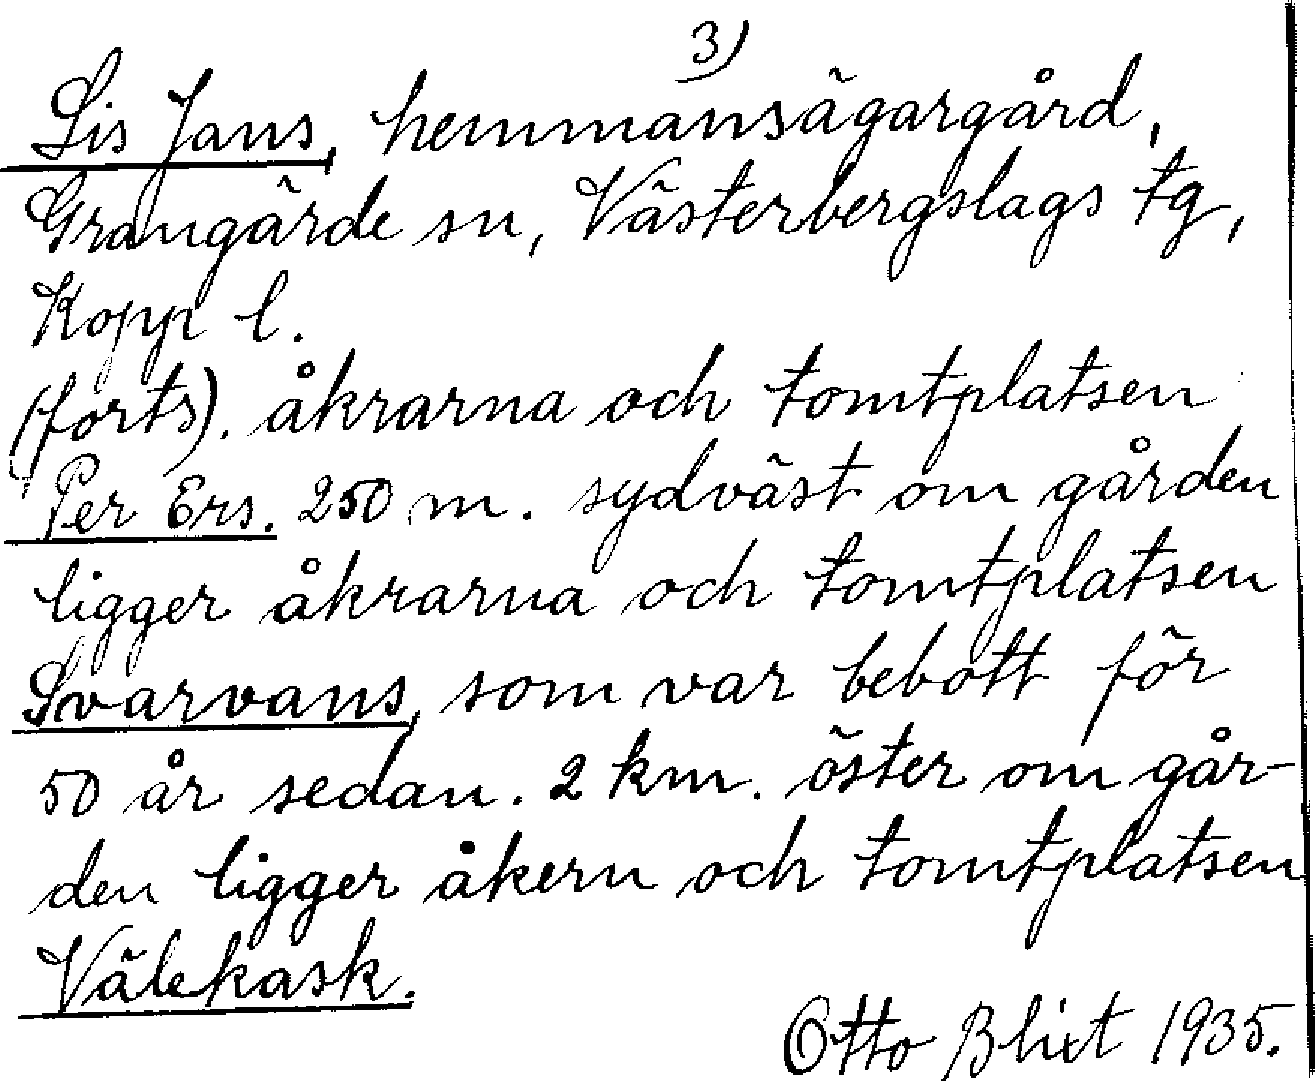 3)
Lis Jans, hemmansägargård,
Grangärde sn, Västerbergslags tg,
Kopp l.
(forts). åkrarna och tomtplatsen
Per Ers. 250 m. sydväst om gården
ligger åkrarna och tomtplatsen
Svarvans, som var bebott för
50 år sedan. 2 km. öster om går-
den ligger åkern och tomtplatsen
Välekask.
Otto Blixt 1935.